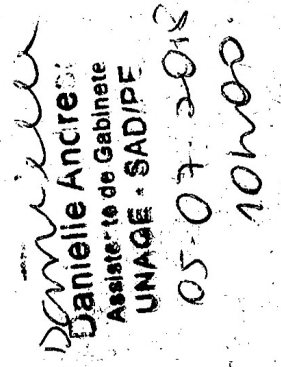 Danielle
Danielle Andre
Assistente de Gabinete
UNAGE - SAD/PE
05-07-2018
10h00.